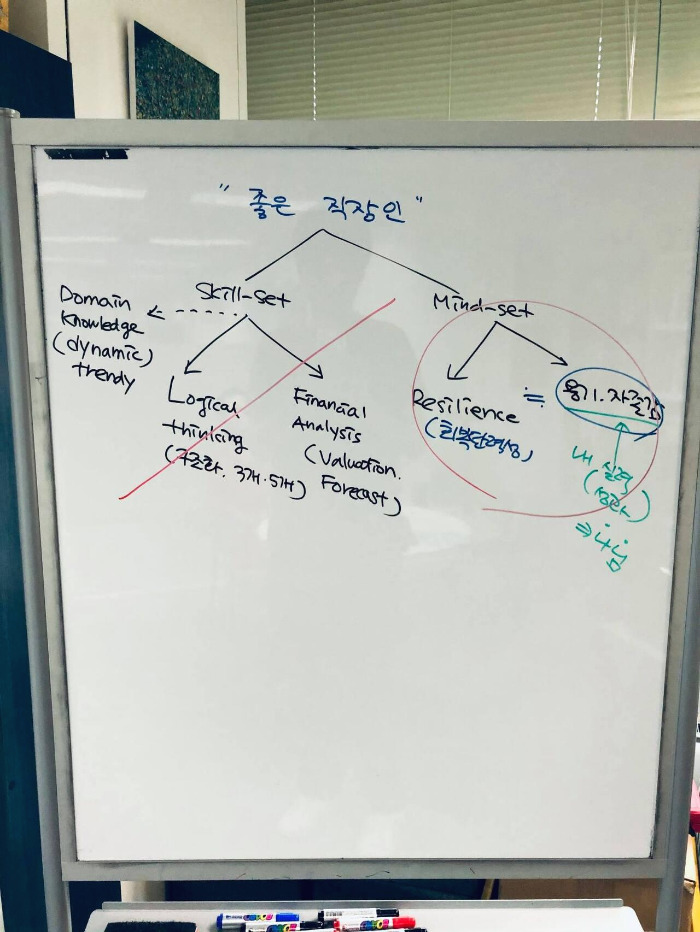 " 좋은 직장인 "
Skill-set
Mind-set
Domain
Knowledge
(dynamic)
trendy
Logical
thinking
(구조화. 3개·5개)
Financial
Analysis
(Valuation.
Forecast)
Resilience
(회복탄력성)
≒
용기·자존감
내 실력
(성과)
⇒